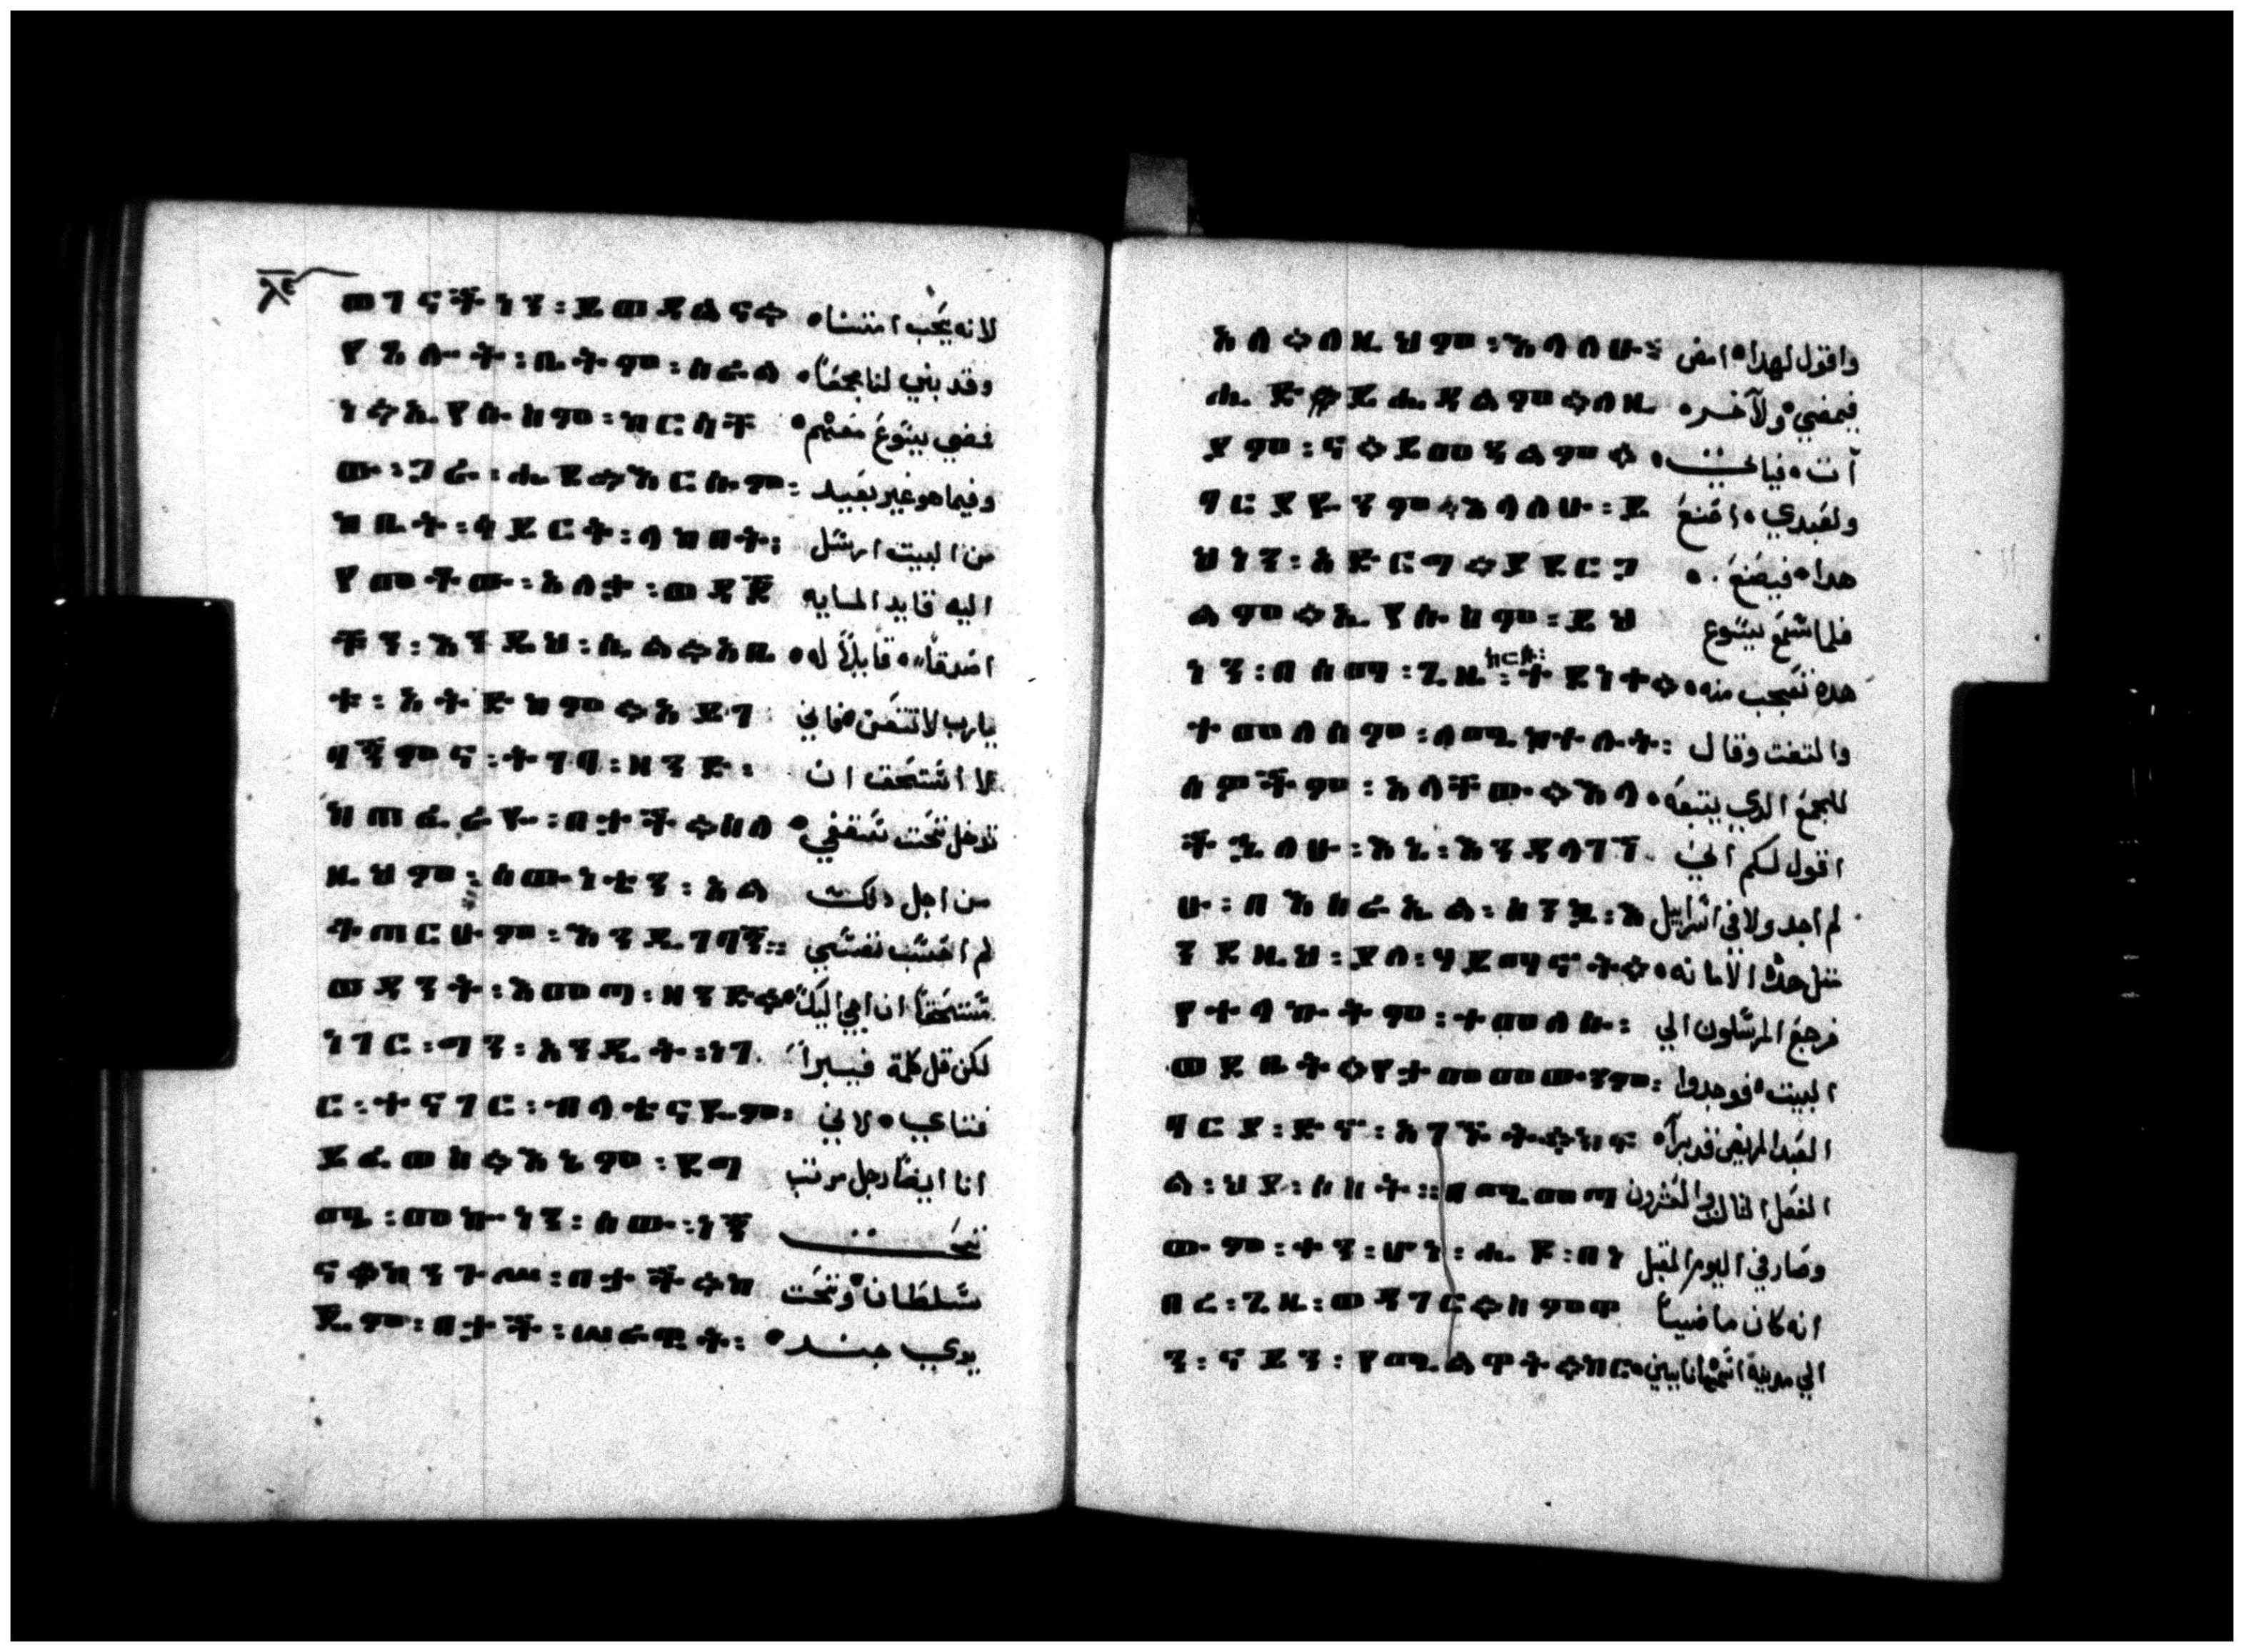 ⲗ̅ⲉ̅
ወገኖችነን፡ ይወዳልና። لانه يحب امتنا
የእሱት፡ ቤትም፡ ሰራል وقد بني لنا مجمعًا
ነ። ኢየሱስም፡ ከርሳቸ فمضي يسوع معهم
ው፡ ጋራ፡ ሔደ። እርሱም፡ وفيما هو غير بعيد
ከቤት፡ ሳይርት፡ ላከበት፡ من البيت ارسل
የመቶው፡ አለቃ፡ ወዳጆ اليه قايد المايه
ቹን፡ እንዲህ፡ ሲል። አቤ اصدقاًه قايلاً له
ቱ፡ አትድከም። አይገ يارب لا تتعن فاني
ባኝምና፡ ትገባ፡ ዘንድ፡ لا استحق ان
ከጣራዬ፡ በታች። ስለ تدخل تحت سقفي
ዚህም፡ ሰውነቴን፡ አል من اجل دلك
ቆጠርሁም፡ እንዲገባኝ፡ لم احسب نفسي
ወዳንት፡ እመጣ፡ ዘንድ። مستحقًا ان اجي اليك
ነገር፡ ግን፡ አንዲት፡ ነገ لكن قل كلمة فيبرا
ር፡ ተናገር፡ ብላቴናዬም፡ فتاي لاني
ይፈወስ። እኔም፡ የማ انا ايضًا رجل مرتب
ሜ፡ መኰነን፡ ሰው፡ ነኝ تحت
ና። ከንግሥ፡ በታች። ከ سلطان وتحت
ዴም፡ በታች፡ ሠራዊት፡ يدي جند
አለ። ለዚህም፡ እላለሁ፡ واقول لهدا امض
ሒድ። ይሔዳልም። ለዚ فيمضي ولآخر
ያም፡ ና። ይመጻልም። آت فياتي
ባርያዬንም። እላለሁ፡ ይ ولعبدي اصنع
ህነን፡ አድርግ። ያደርጋ هدا فيصنع
ልም። ኢየሱስም፡ ይህ فلما سمع يسوع
ነን፡ በሰማ፡ ጊዜ፡ ከርሱ፡ ተደነቀ። هده تعجب منه
ተመለሰም፡ ለሚከተሉት፡ والتفت وقال
ሰዎችም፡ አላቸው። እላ للجمع الدي يتبعه
ችኋለሁ፡ እኔ፡ እንዳላገኘ اقول لكم اني
ሁ፡ በእስራኤል፡ ስንኳ፡ እ لم اجد ولا في اسراييل
ንደዚህ፡ ያለ፡ ሃይማኖት። متل هده الامانه
የተላኩትም፡ ተመለሱ፡ فرجع المرسلون الي
ወደቤት። የታመመውንም፡ البيت فوجدوا
ባርያ፡ ድኖ፡ አገኙት። ከፍ العبد المريض قد برا
ል፡ ህያ፡ ሰስት። በሚመጣ الفصل التالت والعشرون
ው፡ ቀን፡ ሁነ፡ ሔዶ፡ በነ وصار في اليوم المقبل
በረ፡ ጊዜ፡ ወዳገር። ስምዋ انه كان ماضيًا
ን፡ ናይን፡ የሚልዋት። ከር الي مدينة اسمها نايين